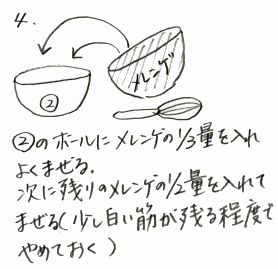 4.
メレンゲ
②
②のボールにメレンゲの1/3量を入れ
よくまぜる.
次に残りのメレンゲの1/2量を入れて
まぜる(少し白い筋が残る程度で
やめておく)